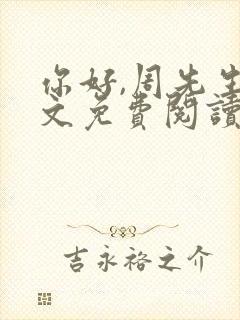 你好,周先生
文免费閱讀
吉永裕之介